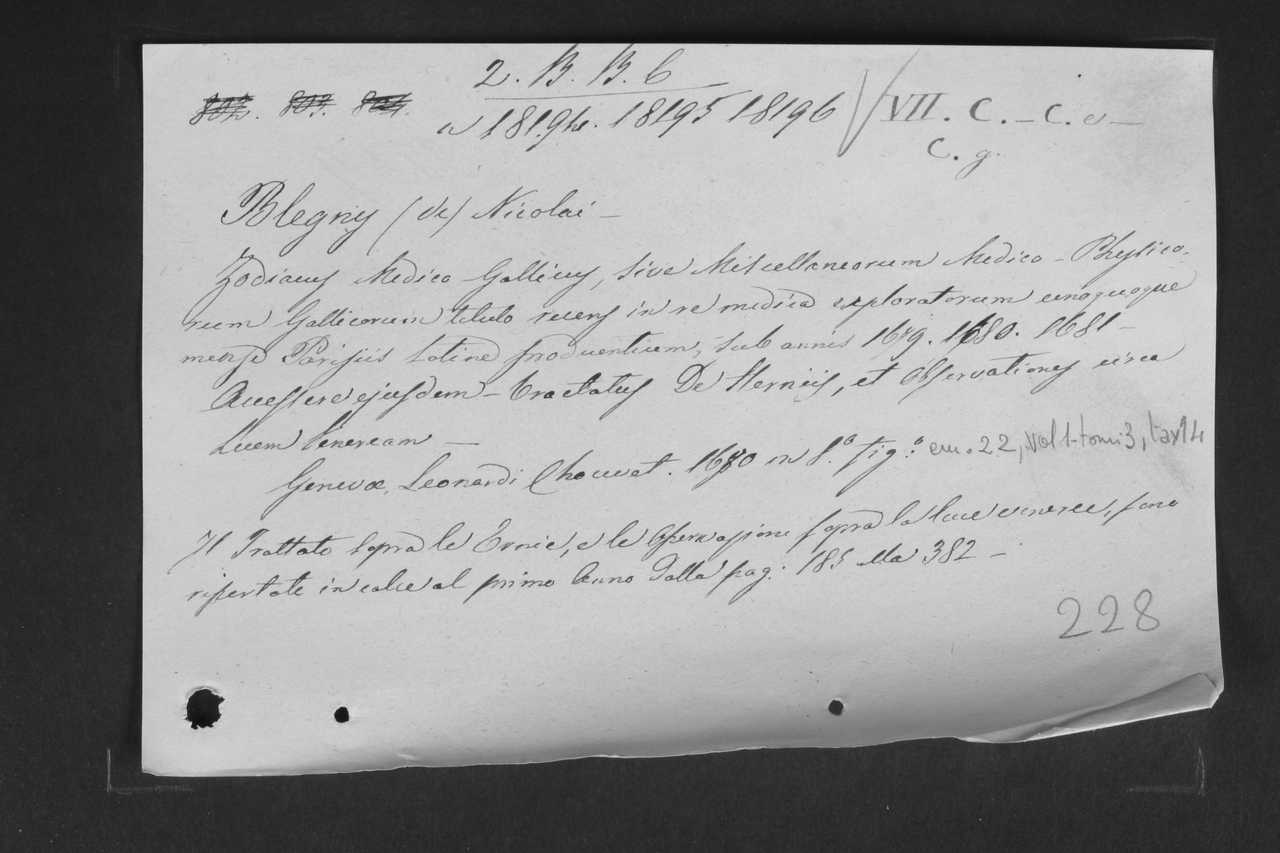 2. B. B. 6
802. 803. 804.
18194. 18195 18196
VII. C. - C. v -
C. g.
Blegny (de) Nicolai -
Zodiacus Medico Gallicus, sive Miscellaneorum Medico - Physico-
rum Gallicorum titulo recens in re medica exploratorum unoquoque
mense Parisiis Latine prodeuntium, sub annis 1679. 1680. 1681 -
Accessere ejusdem - Tractatus De Herniis, et Observationes circa
Luem Veneream -
Genevæ, Leonardi Chouvet. 1680 in 8.° fig.° cm. 22, vol 1-tomi 3, tav 14
Il Trattato sopra le Ernie, e le Osservazioni sopra la lue venerea, sono
riportate in calce al primo Anno dalla pag. 185 alla 382 -
228